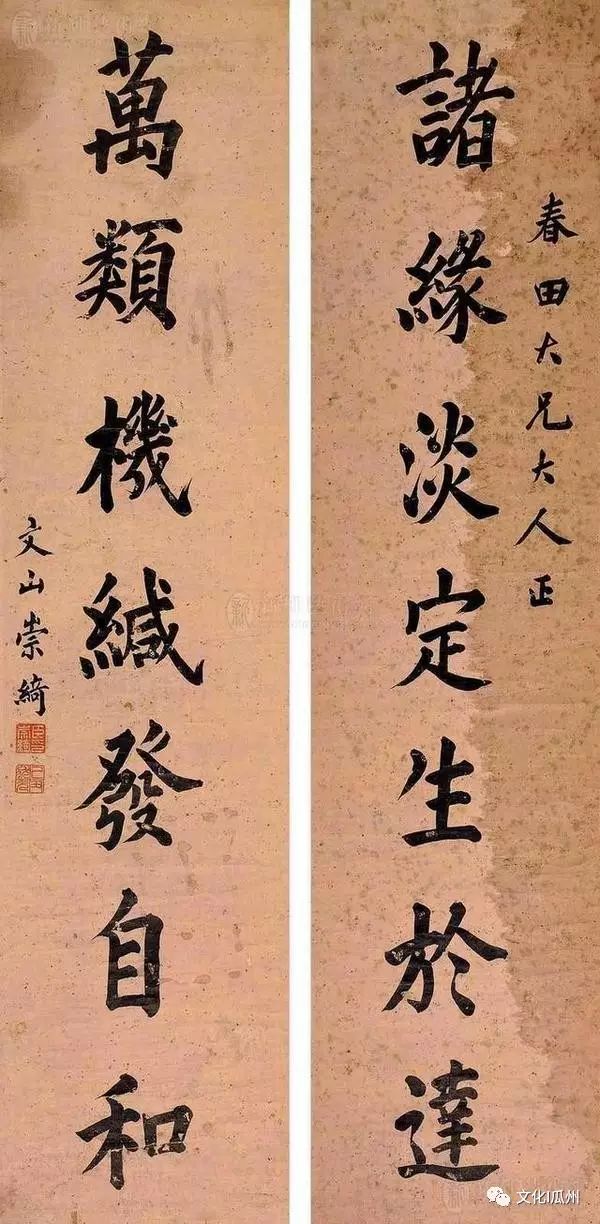 春田大兄大人正
諸緣淡定生於達
萬類機緘發自和
文山崇綺
文化I瓜州